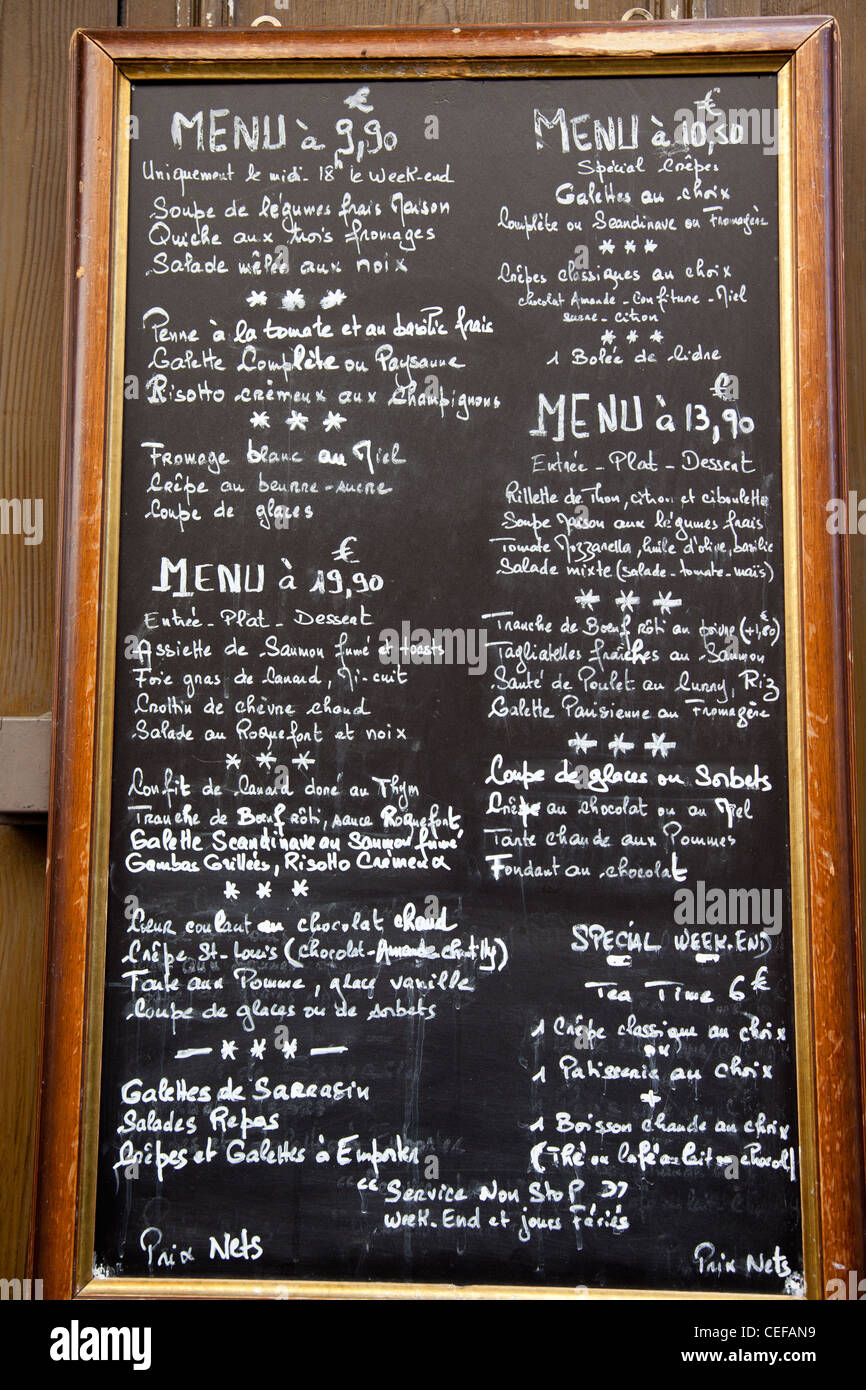 MENU à 9,90 €
Uniquement le midi - 18h le week-end
Soupe de légumes frais Maison
Quiche aux trois fromages
Salade mêlée aux noix
***
Penne à la tomate et au basilic frais
Galette Complète ou Paysanne
Risotto crémeux aux Champignons
***
Fromage blanc au Miel
Crêpe au beurre-sucre
Coupe de glaces
MENU à 19,90 €
Entrée - Plat - Dessert
Assiette de Saumon fumé et toasts
Foie gras de Canard, Mi-cuit
Crottin de chèvre chaud
Salade au Roquefort et noix
***
Confit de Canard doré au Thym
Tranche de Bœuf rôti, sauce Roquefort
Galette Scandinave au Saumon fumé
Gambas Grillées, Risotto Crémeux
***
Cœur coulant au chocolat chaud
Crêpe St-Louis (chocolat-Amande chantilly)
Tarte aux Pomme, glace vanille
Coupe de glaces ou de sorbets
- *** -
Galettes de SARRASIN
Salades Repas
Crêpes et Galettes à Emporter
"Service Non Stop"
Week-End et jours Fériés
Prix Nets
MENU à 10,50 €
Spécial Crêpes
Galettes au choix
Complète ou Scandinave ou Fromagère
***
Crêpes classiques au choix
chocolat Amande - Confiture - Miel
sucre - citron
***
1 Bolée de Cidre
MENU à 13,90 €
Entrée - Plat - Dessert
Rillette de Thon, citron et ciboulette
Soupe Maison aux légumes frais
Tomate Mozzarella, huile d'olive, basilic
Salade mixte (salade-tomate-maïs)
***
Tranche de Bœuf rôti au poivre (+1,80 €)
Tagliatelles fraîches au Saumon
Sauté de Poulet au Curry, Riz
Galette Parisienne ou Fromagère
***
Coupe de glaces ou Sorbets
Crêpe au chocolat ou au Miel
Tarte chaude aux Pommes
Fondant au chocolat
SPECIAL WEEK.END
Tea Time 6 €
1 Crêpe classique au choix
ou
1 Patisserie au choix
+
1 Boisson chaude au choix
(Thé ou café au lait ou chocol)
Prix Nets
alamy
Image ID: CEFAN9
www.alamy.com